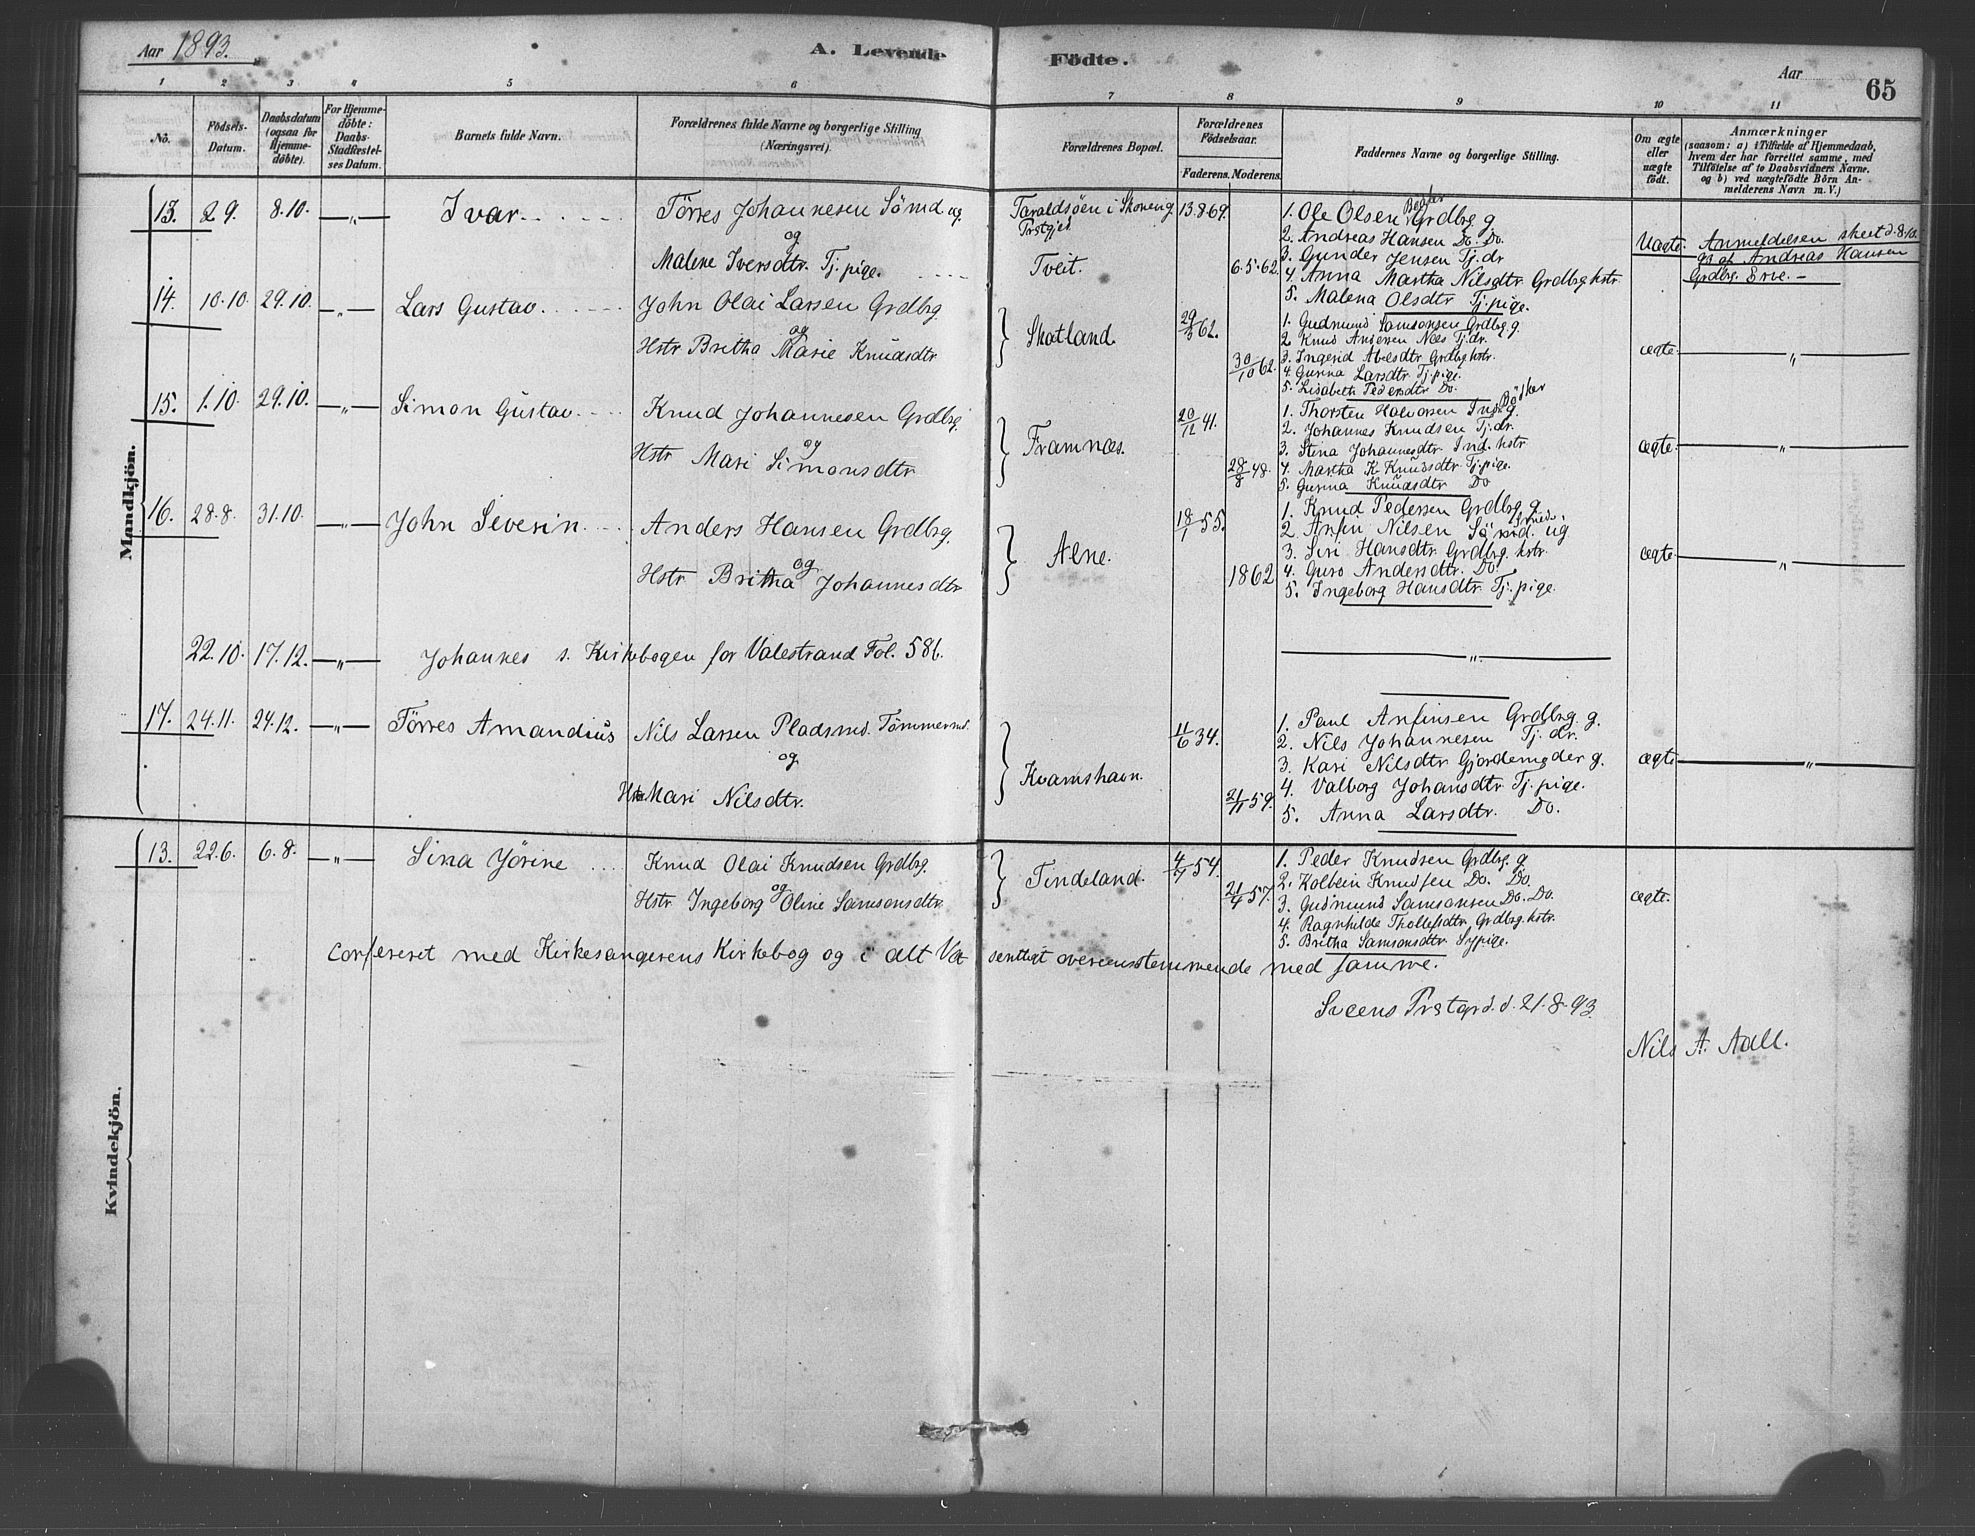 Aar 1893.
A. Levende Födte.
Aar
65
1 2 3 4 5 6 7 8 9 10 11
No.
Födsels-Datum.
Daabsdatum (ogsaa for Hjemme-döbte).
For Hjemme-döbte: Daabs-Stadfæstel-ses Datum.
Barnets fulde Navn.
Forældrenes fulde Navne og borgerlige Stilling (Næringsvei).
Forældrenes Bopæl.
Forældrenes Födselsaar.
Faderens. Moderens.
Faddernes Navne og borgerlige Stilling.
Om ægte eller uægte födt.
Anmærkninger
(saasom: a) i Tilfælde af Hjemmedaab, hvem der har forrettet samme, med Tilföielse af to Daabsvidners Navne. og b) ved uægtefödte Börn Anmelderens Navn m. V.)
Mandkjön.
13. 2 9. 8.10. —„— Ivar
Törres Johannesen Sömd ug.
og
Malene Iversdtr. Tj. pige.
Taraldsöen i Skoneng
Prstgjed
Tveit.
13.8.69.
6.5.62.
1. Ole Olsen Bödker Grdbrg g
2. Andreas Hansen Do. Do
3. Gunder Jensen Tj. dr
4. Anna Martha Nilsdtr Grdbrg hstr.
5. Malena Olsdtr Tj. pige.
Uægte.
Anmeldelsen skeet d. 8.10.
93 af Andreas Hansen
Grdbrg Erve. —
14. 10.10. 29.10. —„— Lars Gustav
John Olai Larsen Grdbrg.
og
Hstr Britha Marie Knudsdtr
Skotland.
29/3 62.
30/10 62.
1. Gudmund Samsonsen Grdbrg g.
2. Knud Andersen Næs Tj. dr.
3. Ingerid Abelsdtr Grdbrg hstr.
4. Gurina Larsdtr Tj. pige.
5. Lisabeth Pedersdtr Do.
ægte. —„—
15. 1.10. 29.10. —„— Simon Gustav
Knud Johannesen Grdbrg.
og
Hstr Mari Simonsdtr
Framnæs.
20/12 41.
28/8 48.
1. Thorsten Halvorsen Ind. Bödker g.
2. Johannes Knudsen Tj. dr.
3. Stina Johannesdtr Ind. hstr
4. Martha K. Knudsdtr. Tj. pige.
5. Gurina Knudsdtr Do
ægte. —„—
16. 28.8. 31.10. —„— John Severin
Anders Hansen Grdbrg.
og
Hstr Britha Johannesdtr
Alne.
18/1 55.
1862
1. Knud Pedersen Grdbrg g
2. Anfin Nilsen Sömd. Smed. ug
3. Siri Hansdtr Grdbrg hstr.
4. Guro Andersdtr. Do.
5. Ingeborg Hansdtr. Tj. pige.
ægte —„—
22.10. 17.12. —„— Johannes s. Kirkebogen for Valestrand Fol. 586. —„—
17. 24.11. 24.12. —„— Törres Amandius
Nils Larsen Pladsmd. Tömmermd.
og
Hstr Mari Nilsdtr.
Kvamshavn.
11/6 34.
21/11 59.
1. Paul Anfinsen Grdbrg. g.
2. Nils Johannesen Tj. dr.
3. Kari Nilsdtr Gjordemoder g.
4. Valborg Johansdtr Tj. pige.
5. Anna Larsdtr. Do.
ægte —„—
Kvindekjön.
13. 22.6. 6.8. —„— Sina Jörine
Knud Olai Knudsen Grdbrg.
og
Hstr Ingeborg Oline Samsonsdtr.
Tindeland.
4/7 54.
21/4 57.
1. Peder Knudsen Grdbrg. g
2. Kolbein Knudsen Do. Do.
3. Gudmund Samsonsen Do. Do.
4. Ragnhilde Thollefsdtr. Grdbrg. hstr.
5. Britha Samsonsdtr. Sypige.
ægte.
Confereret med Kirkesangerens Kirkebog og i alt Væsentligt overeensstemmende med samme.
Sveens Prstgrd. d. 21.8.93.
Nils A. Aall.